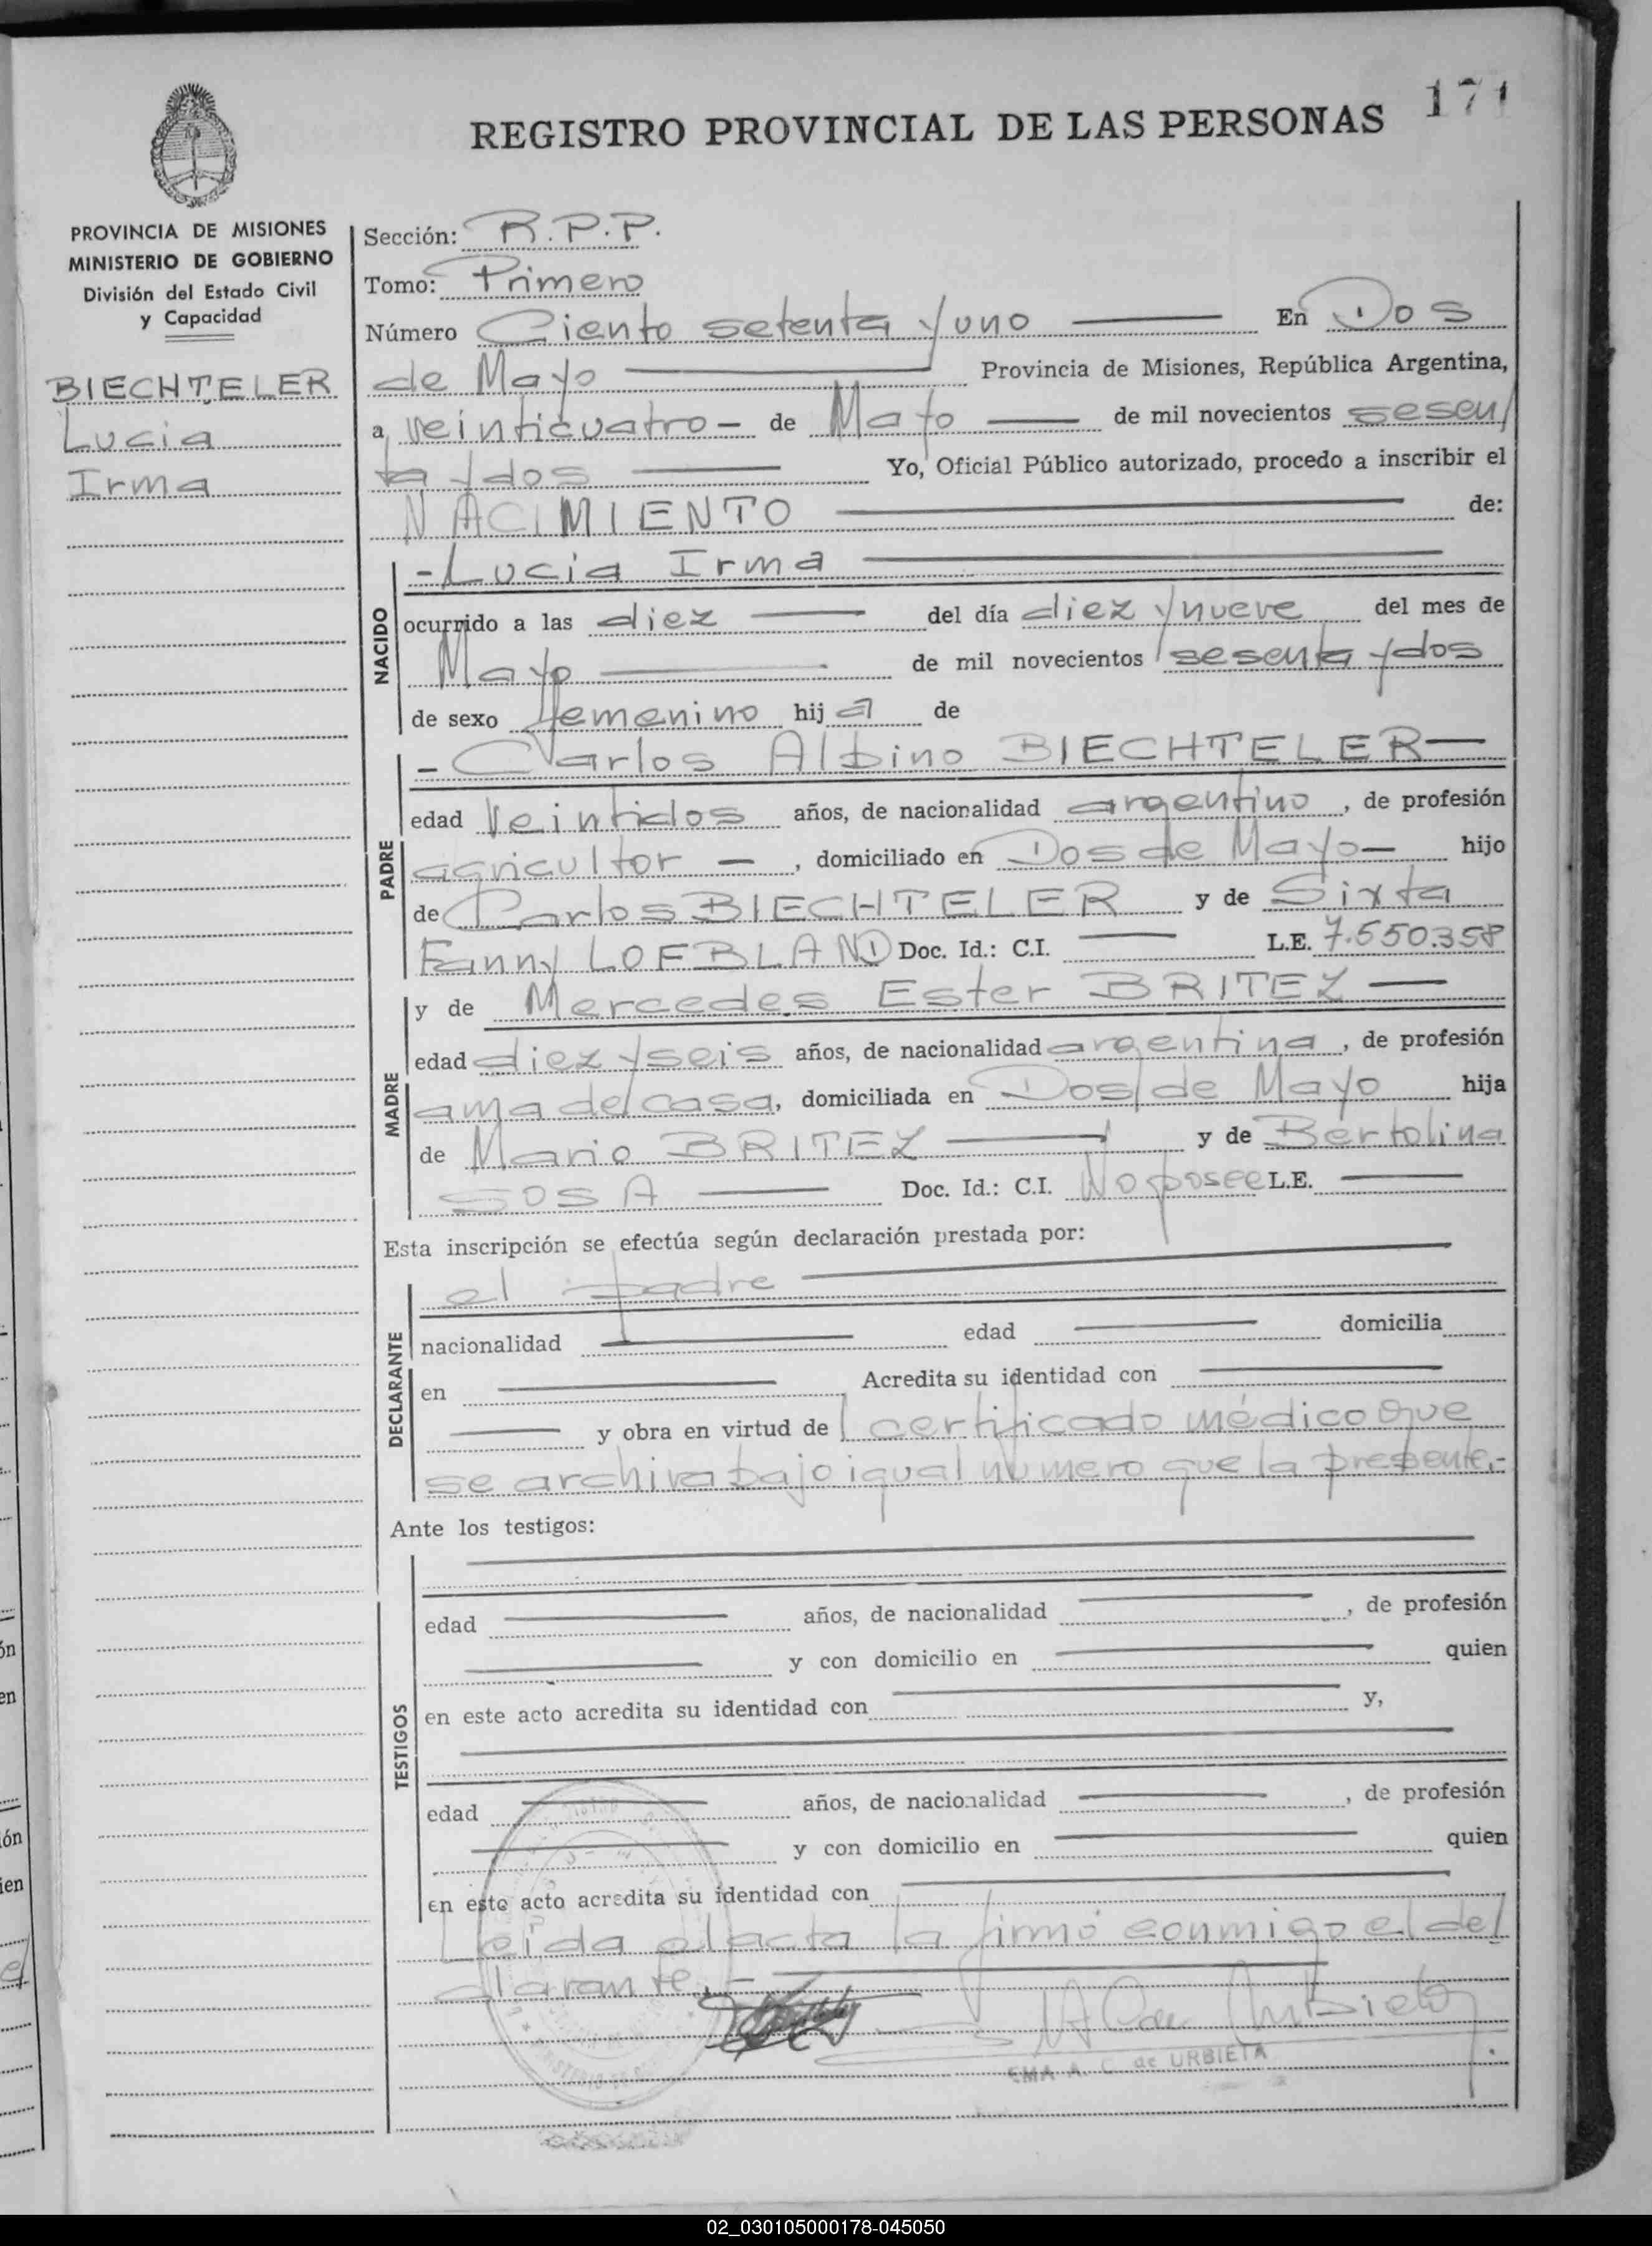 171
REGISTRO PROVINCIAL DE LAS PERSONAS
PROVINCIA DE MISIONES
MINISTERIO DE GOBIERNO
División del Estado Civil
y Capacidad
BIECHTELER
Lucia
Irma
Sección: R.P.P.
Tomo: Primero
Número Ciento setenta y uno En Dos
de Mayo Provincia de Misiones, República Argentina,
a veinticuatro - de Mayo de mil novecientos sesen
ta y dos Yo, Oficial Público autorizado, procedo a inscribir el
NACIMIENTO de:
NACIDO
- Lucia Irma
ocurrido a las diez del día diez y nueve del mes de
Mayo de mil novecientos sesenta y dos
de sexo femenino hija de
PADRE
- Carlos Albino BIECHTELER
edad veintidos años, de nacionalidad argentino, de profesión
agricultor -, domiciliado en Dos de Mayo - hijo
de Carlos BIECHTELER y de Sixta
Fanny LOFBLAND Doc. Id.: C.I. L.E. 7.550.358
MADRE
y de Mercedes Ester BRITEZ
edad diez y seis años, de nacionalidad argentina, de profesión
ama de casa, domiciliada en Dos de Mayo hija
de Mario BRITEZ y de Bertolina
SOSA Doc. Id.: C.I. No posee L.E.
Esta inscripción se efectúa según declaración prestada por:
DECLARANTE
el padre
nacionalidad edad domicilia
en Acredita su identidad con
y obra en virtud de certificado médico que
se archiva bajo igual número que la presente.-
Ante los testigos:
TESTIGOS
edad años, de nacionalidad , de profesión
y con domicilio en quien
en este acto acredita su identidad con y,
edad años, de nacionalidad , de profesión
y con domicilio en quien
en este acto acredita su identidad con
Leida el acta la firmó conmigo el de
clarante.-
EMA A. C. de URBIETA
02_030105000178-045050